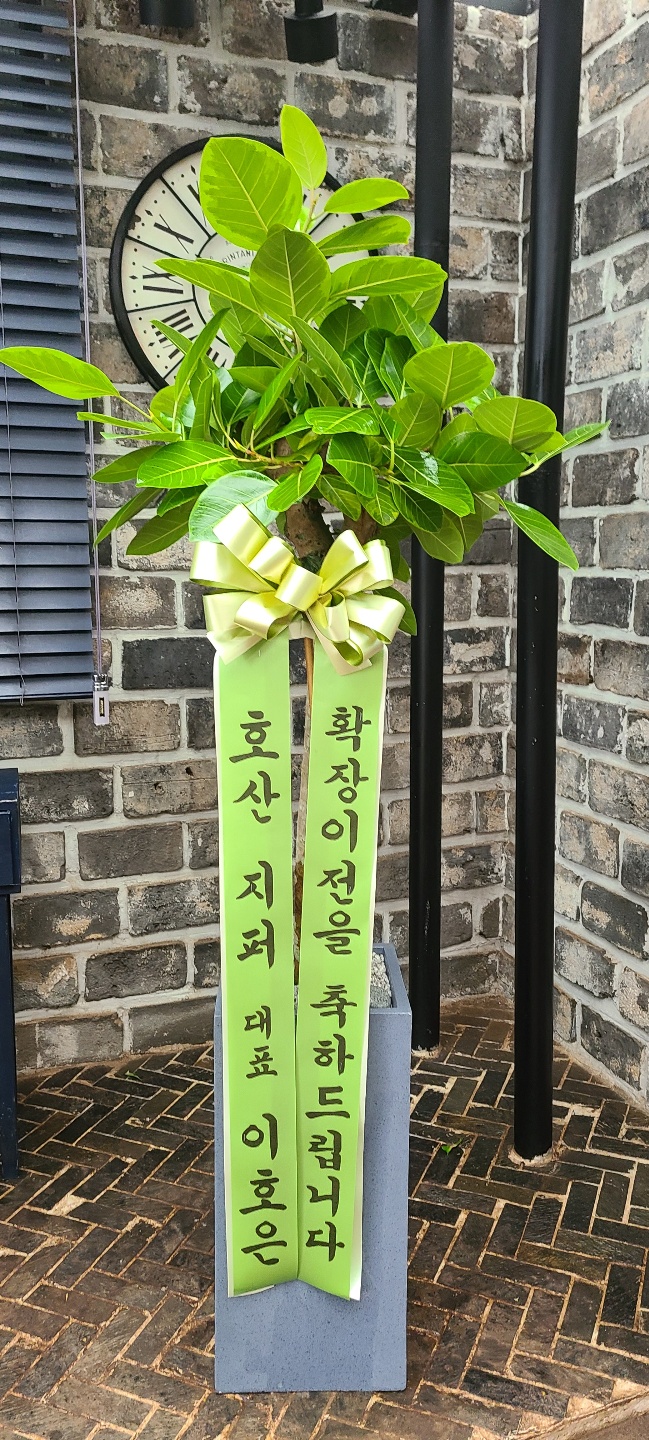 호산 지퍼 대표 이호은
확장이전을 축하드립니다